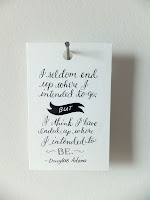 I seldom end
up where I
intended to go,
BUT
I think I have
ended up where
I intended to
BE.
~Douglas Adams